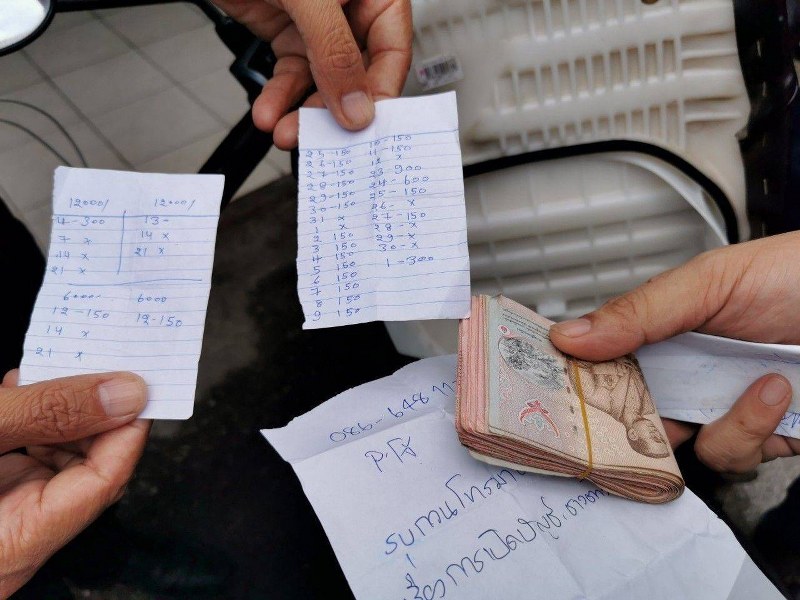 12000/ 12000/
4-300 13-
7 x 14 x
14 x 21 x
21 x
6000 6000
12-150 12-150
14 x
21 x
25-150 10-150
26-150 11-150
27-150 12 x
28-150 23-900
29-150 24-600
30-150 25-150
31 x 26- x
1 x 27-150
2 150 28-x
3 150 29-x
4 150 30-x
5 150 1-300
6 150
7 150
8 150
9 150
086-648
รบกวนโทรมา
การเปิดบัญชี